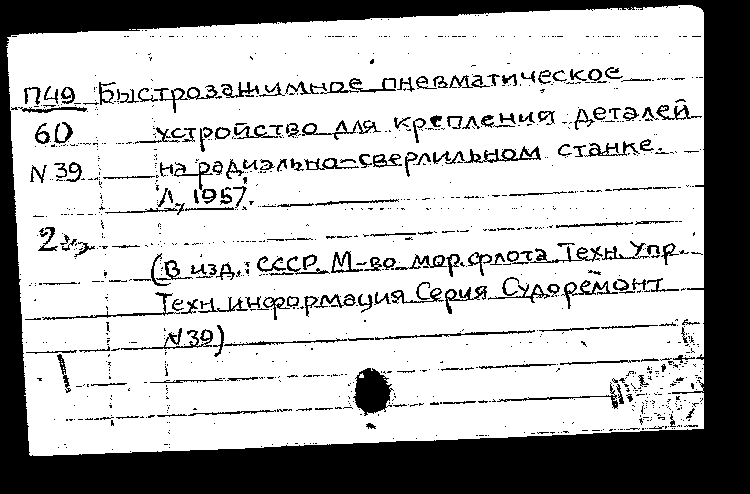 П49 Быстрозажимное пневматическое
60 устройство для крепления деталей
N 39 на радиально-сверлильном станке.
Л., 1957.
(В изд.: СССР. М-во мор. флота. Техн. Упр.
Техн. информация Серия Судоремонт
N 39)